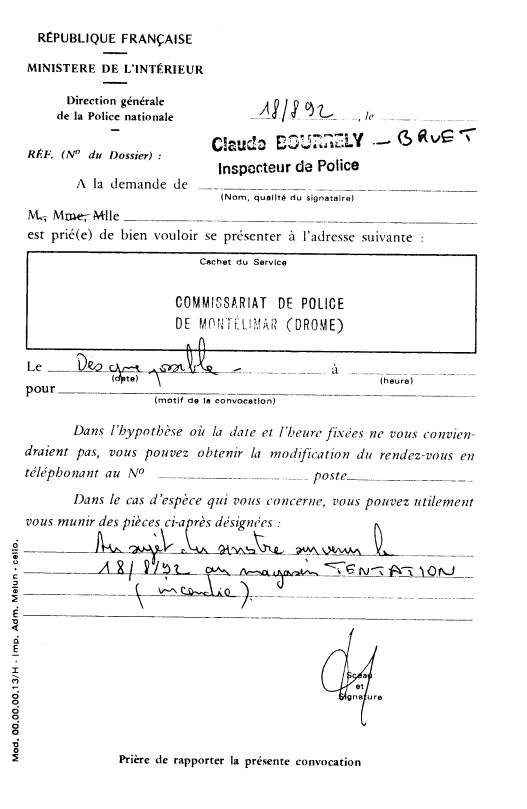 RÉPUBLIQUE FRANÇAISE
MINISTERE DE L'INTÉRIEUR
Direction générale
de la Police nationale
18/8 92, le
Claude BOURRELY - BRUET
Inspecteur de Police
RÉF. (Nº du Dossier) :
A la demande de
(Nom, qualité du signataire)
M., Mme, Mlle
est prié(e) de bien vouloir se présenter à l'adresse suivante :
Cachet du Service
COMMISSARIAT DE POLICE
DE MONTÉLIMAR (DROME)
Le Des que possible - à
(date) (heure)
pour
(motif de la convocation)
Dans l'hypothèse où la date et l'heure fixées ne vous convien-
draient pas, vous pouvez obtenir la modification du rendez-vous en
téléphonant au Nº poste
Dans le cas d'espèce qui vous concerne, vous pouvez utilement
vous munir des pièces ci-après désignées :
Au sujet du sinistre survenu le
18/8/92 au magasin TENTATION
(incendie).
Sceau
et
Signature
Mod. 00.00.00.13/H - Imp. Adm. Melun - cello.
Prière de rapporter la présente convocation